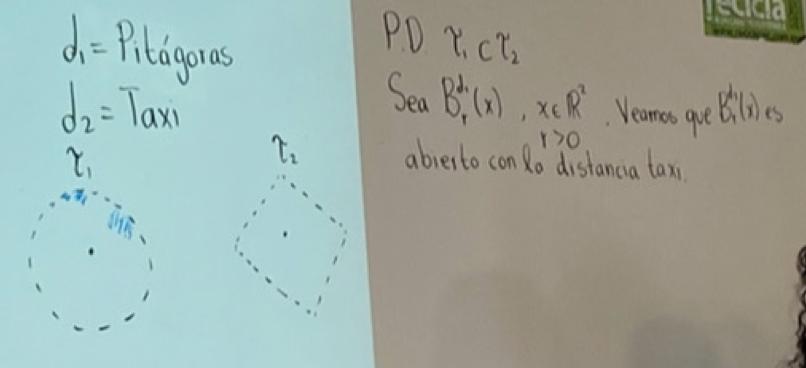 d₁ = Pitágoras
d₂ = Taxi
τ₁
τ₂
P.D τ₁ ⊂ τ₂
Sea Bᵣᵈ¹(x), x ∈ ℝ², r>0. Veamos que Bᵣᵈ¹(x) es
abierto con la distancia taxi.
recicla